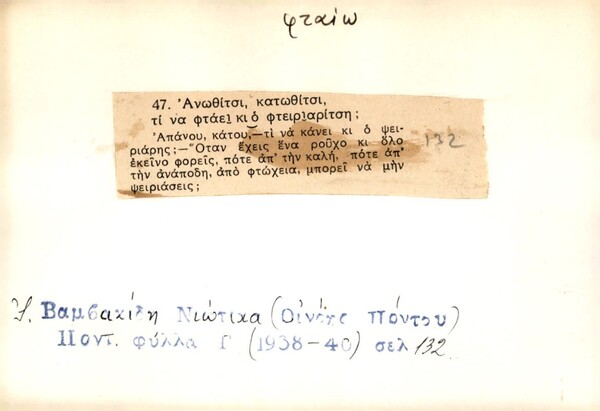 φταίω
47. Ἀνωθίτσι, κατωθίτσι,
τί να φτάει κι ὁ φτειριαρίτση;
Ἀπάνου, κάτου,—τὶ νὰ κάνει κι ὁ ψει-
ριάρης;—Ὅταν ἔχεις ἕνα ροῦχο κι ὅλο
ἐκεῖνο φορεῖς, πότε ἀπ' τὴν καλή, πότε ἀπ'
τὴν ἀνάποδη, ἀπὸ φτώχεια, μπορεῖ νὰ μὴν
ψειριάσεις;
132
Βαμβακίδη Νιώτικα (Οἰνόης Πόντου)
Ποντ. φύλλα Γ' (1938-40) σελ 132